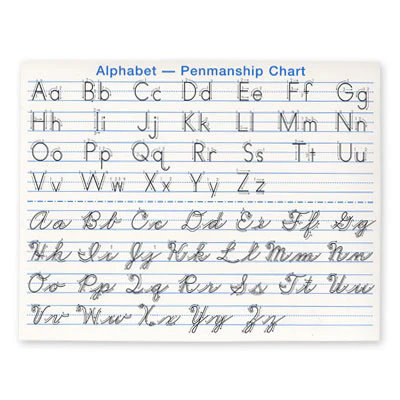 Alphabet — Penmanship Chart
Aa Bb Cc Dd Ee Ff Gg
Hh Ii Jj Kk Ll Mm Nn
Oo Pp Qq Rr Ss Tt Uu
Vv Ww Xx Yy Zz
Aa Bb Cc Dd Ee Ff Gg
Hh Ii Jj Kk Ll Mm Nn
Oo Pp Qq Rr Ss Tt Uu
Vv Ww Xx Yy Zz